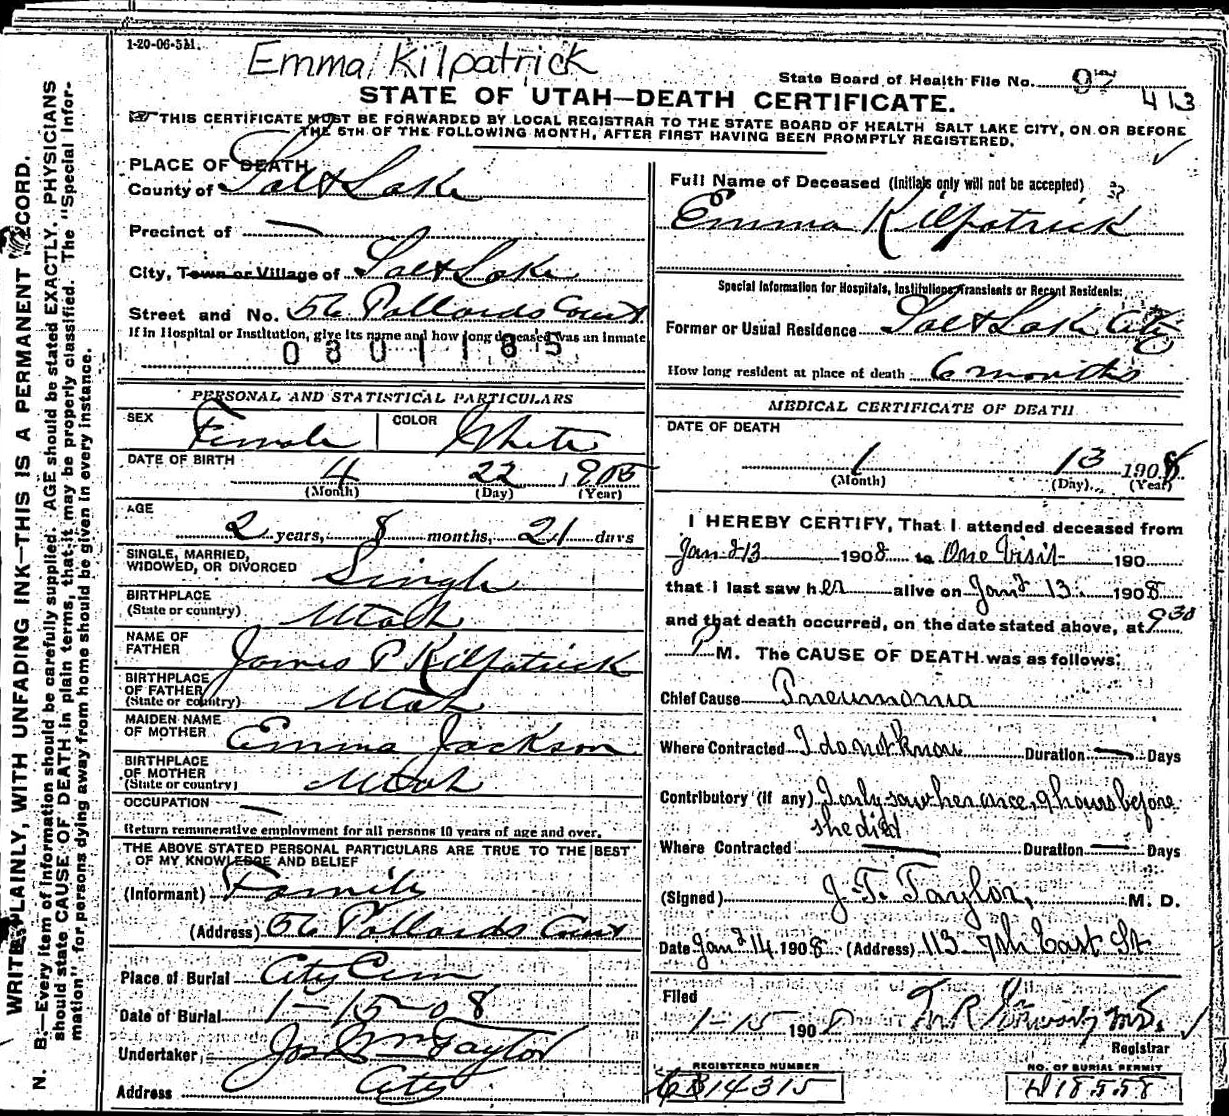 1-20-06-5M.
Emma Kilpatrick
State Board of Health File No. 97
413
STATE OF UTAH—DEATH CERTIFICATE.
THIS CERTIFICATE MUST BE FORWARDED BY LOCAL REGISTRAR TO THE STATE BOARD OF HEALTH SALT LAKE CITY, ON OR BEFORE
THE 5TH OF THE FOLLOWING MONTH, AFTER FIRST HAVING BEEN PROMPTLY REGISTERED.
PLACE OF DEATH
County of Salt Lake
Precinct of —
City, Town or Village of Salt Lake
Street and No. 56 Pollards Court
If in Hospital or Institution, give its name and how long deceased was an inmate
0801185
PERSONAL AND STATISTICAL PARTICULARS
SEX Female COLOR White
DATE OF BIRTH 4 22 1905
(Month) (Day) (Year)
AGE
2 years, 8 months, 21 days
SINGLE, MARRIED,
WIDOWED, OR DIVORCED Single
BIRTHPLACE
(State or country) Utah
NAME OF
FATHER James P Kilpatrick
BIRTHPLACE
OF FATHER
(State or country) Utah
MAIDEN NAME
OF MOTHER Emma Jackson
BIRTHPLACE
OF MOTHER
(State or country) Utah
OCCUPATION —
Return remunerative employment for all persons 10 years of age and over.
THE ABOVE STATED PERSONAL PARTICULARS ARE TRUE TO THE BEST
OF MY KNOWLEDGE AND BELIEF
(Informant) Family
(Address) 56 Pollards Court
Place of Burial City Cem
Date of Burial 1-15-08
Undertaker, Jos Wm Taylor
Address City
Full Name of Deceased (Initials only will not be accepted)
Emma Kilpatrick
Special Information for Hospitals, Institutions, Transients or Recent Residents:
Former or Usual Residence Salt Lake City
How long resident at place of death 6 months
MEDICAL CERTIFICATE OF DEATH
DATE OF DEATH
1 13 1908
(Month) (Day) (Year)
I HEREBY CERTIFY, That I attended deceased from
Jany 13 1908 to One Visit 190
that I last saw her alive on Jany 13 1908
and that death occurred, on the date stated above, at 9 30
P M. The CAUSE OF DEATH was as follows:
Chief Cause Pneumonia
Where Contracted I do not know Duration — Days
Contributory (if any) I only saw her once, 9 hours before
she died
Where Contracted — Duration — Days
(Signed) J. T. Taylor, M. D.
Date Jany 14 1908 (Address) 113 7th East St
Filed
1-15 1908
Registrar
REGISTERED NUMBER
14315
NO. OF BURIAL PERMIT
18558
WRITE PLAINLY, WITH UNFADING INK—THIS IS A PERMANENT RECORD.
N. B.—Every item of information should be carefully supplied. AGE should be stated EXACTLY. PHYSICIANS
should state CAUSE OF DEATH in plain terms, that it may be properly classified. The "Special Infor-
mation" for persons dying away from home should be given in every instance.